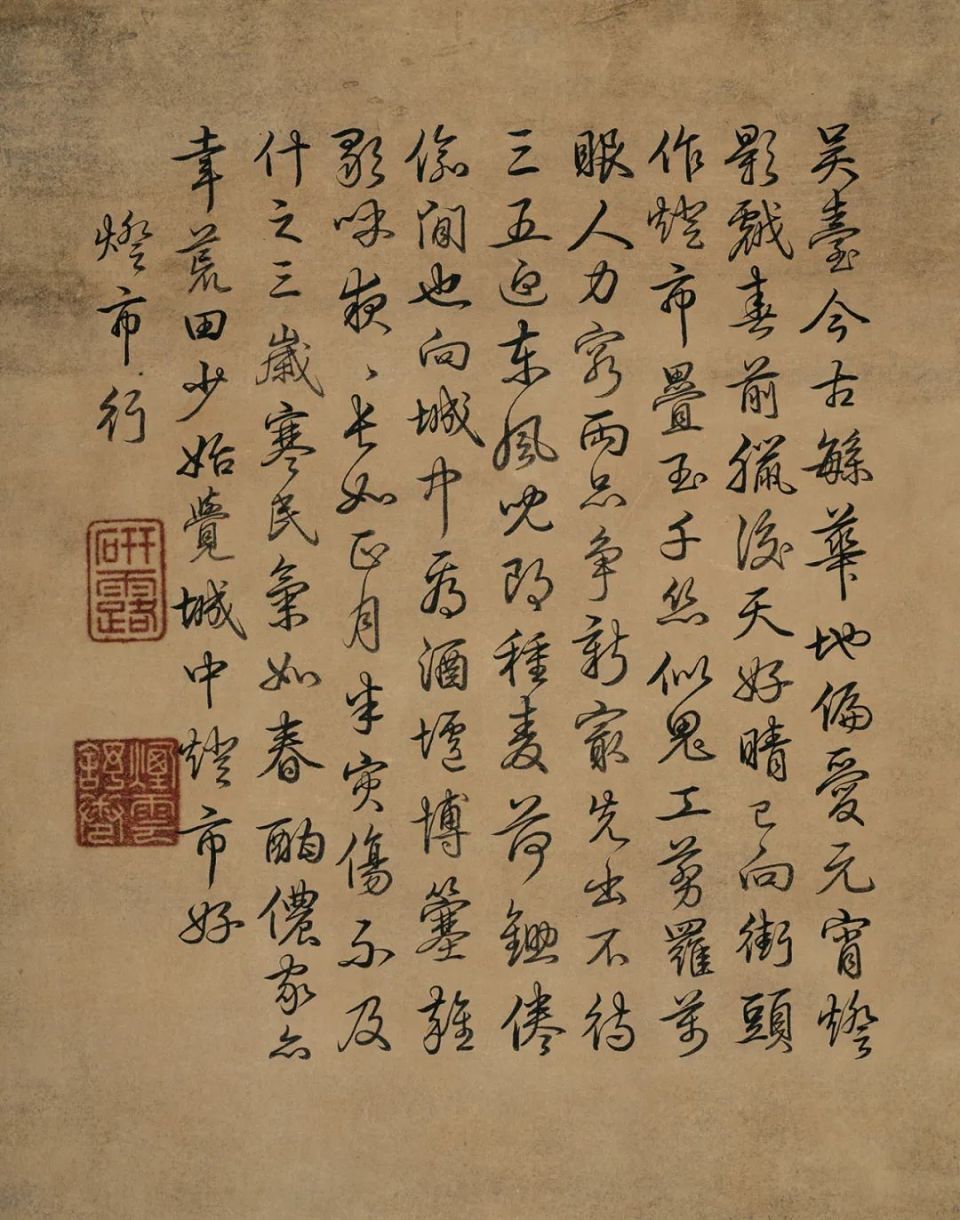 吴臺今古緐華地偏愛元宵燈
影戲春前臘後天好晴已向街頭
作燈市疊玉千絲似鬼工剪羅萬
眼人力窮兩品爭新最先出不待
三五迎東風兒郎種麥荷鋤倦
偷閒也向城中看酒壚博簺雜
歌呼夜〻長如正月半災傷不及
什之三歲寒民氣如春酣儂家亦
幸荒田少始覺城中燈市好
燈市行
研露
煙雲